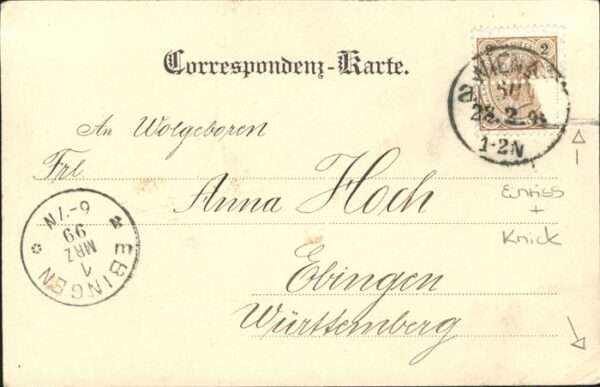 Correspondenz-Karte.
2 2
WIEN
1-2N
An Wolgeboren
Frl.
Anna Hoch
Einriss
+
Knick
EBINGEN
1
MRZ
99
6-7N
Ebingen
Württemberg